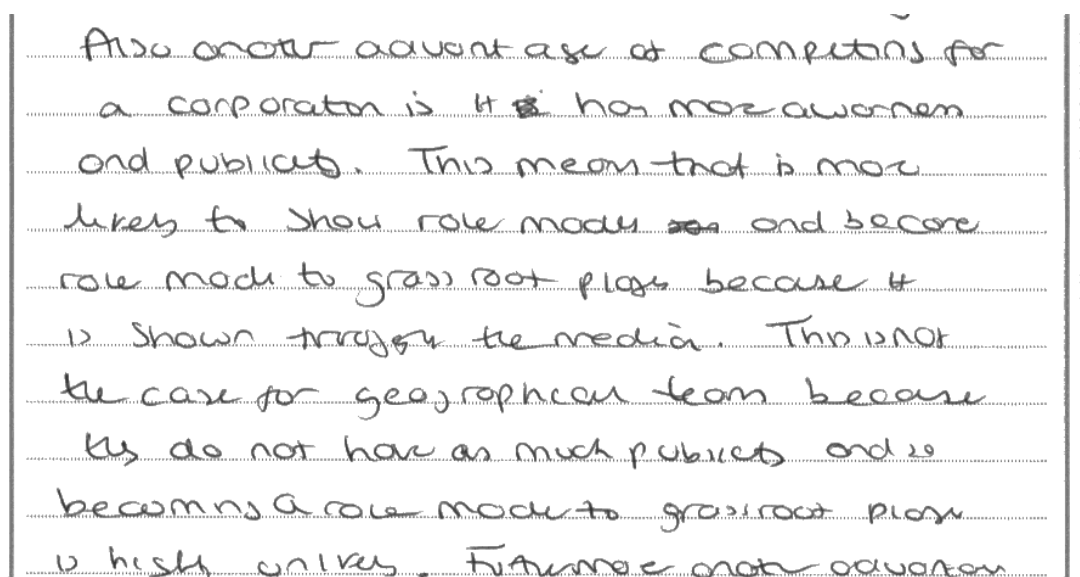 Also another advantage of competing for
a corporation is it has more awareness
and publicity. This means that is more
likely to show role models and become
role model to grass root players because it
is shown through the media. This is not
the case for geographical teams because
they do not have as much publicity and so
becoming a role model to grassroot players
is highly unlikely. Furthermore another advantage